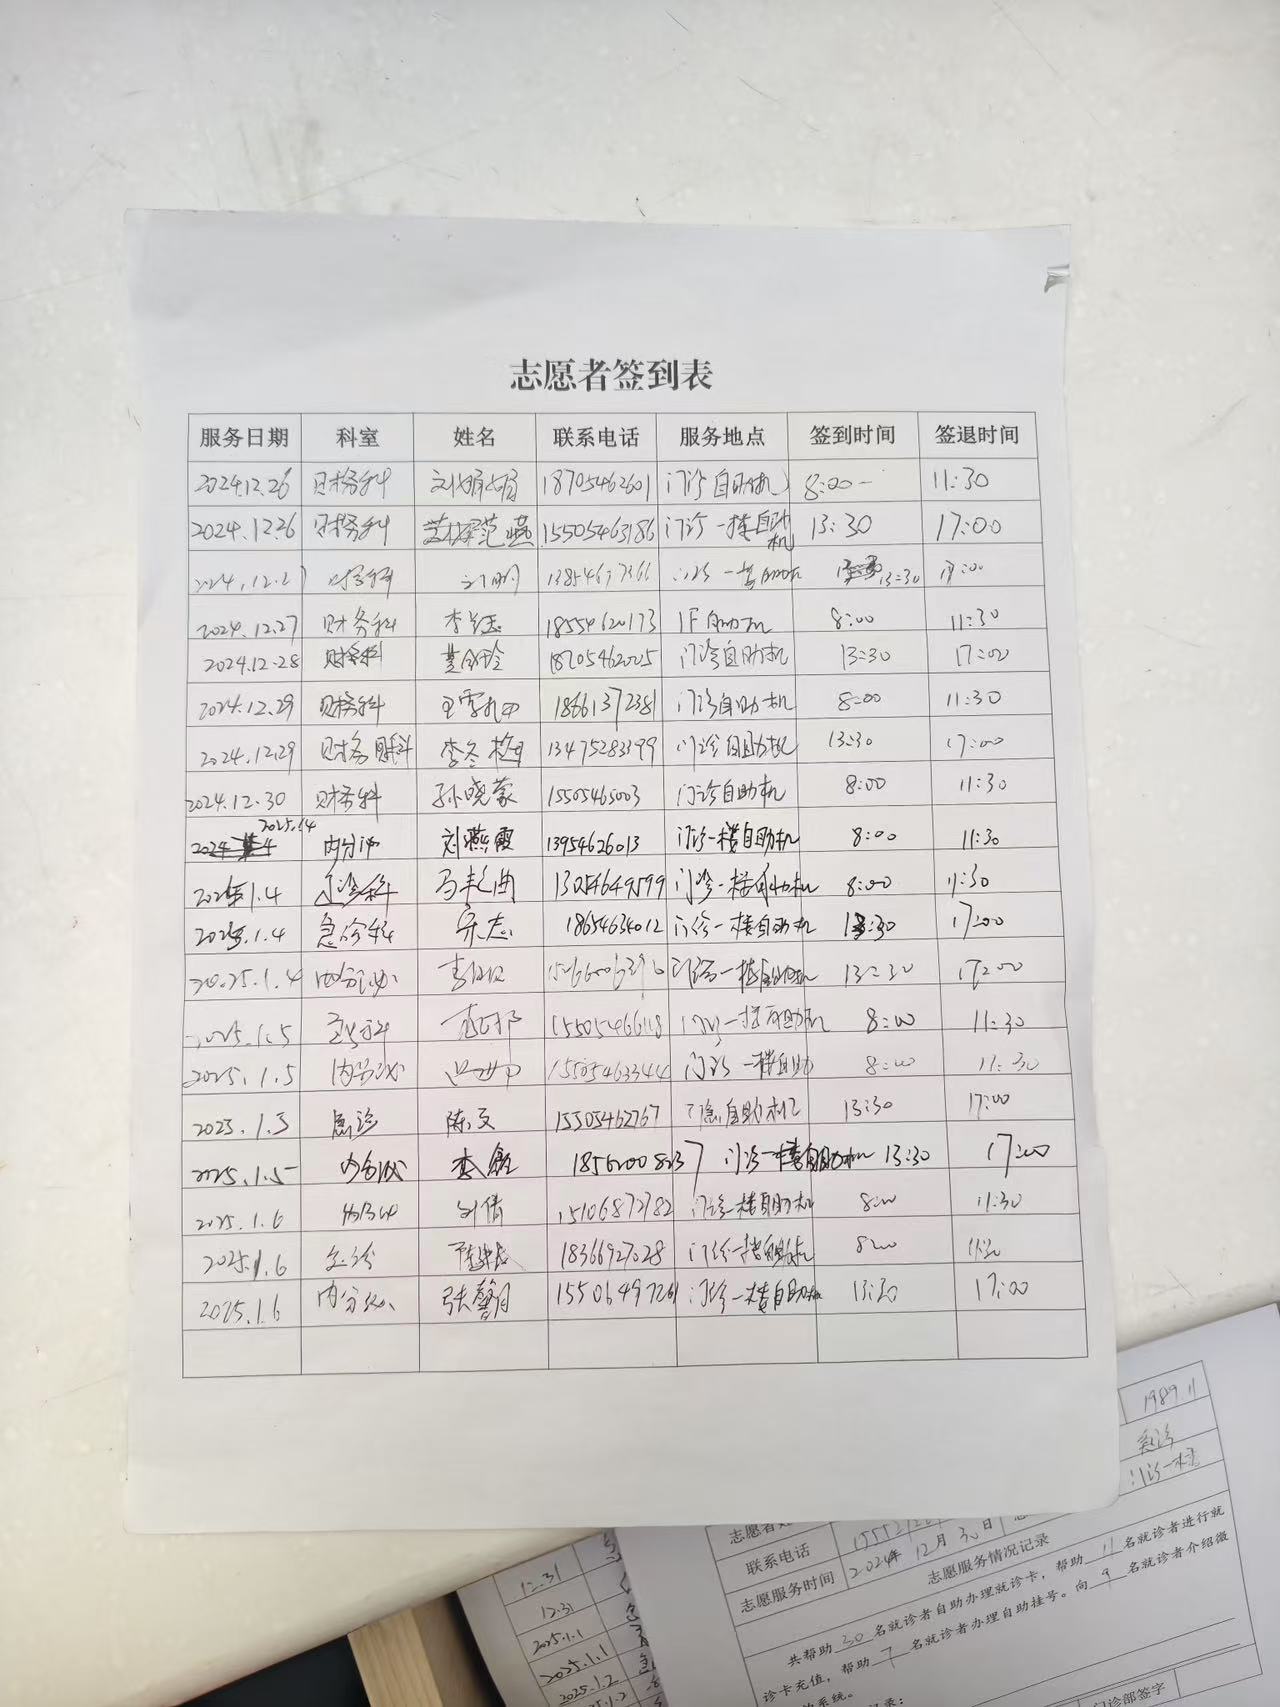 志愿者签到表
服务日期 科室 姓名 联系电话 服务地点 签到时间 签退时间
2024.12.26 财务科 18705462601 门诊自助机 8:00 11:30
2024.12.26 财务科 15505463186 门诊一楼自助机 13:30 17:00
2024.12.27 财务科 门诊一楼自助机 13:30 17:00
2024.12.27 财务科 18554620173 1F自助机 8:00 11:30
2024.12.28 财务科 18705462005 门诊自助机 13:30 17:00
2024.12.29 财务科 18661372381 门诊自助机 8:00 11:30
2024.12.29 财务科 李冬梅 13475283399 门诊自助机 13:30 17:00
2024.12.30 财务科 孙晓蒙 15505465003 门诊自助机 8:00 11:30
2025.1.4 内分泌 刘燕霞 13954626013 门诊一楼自助机 8:00 11:30
2025.1.4 急诊科 13054649599 门诊一楼自助机 8:00 11:30
2025.1.4 急诊科 宋志 18654634012 门诊一楼自助机 13:30 17:00
2025.1.4 内分泌 门诊一楼自助机 13:30 17:00
2025.1.5 急诊科 门诊一楼自助机 8:00 11:30
2025.1.5 内分泌 15505463344 门诊一楼自助 8:00 11:30
2025.1.5 急诊 陈文 15505462767 自助机 13:30 17:00
2025.1.5 内分泌 李 门诊一楼自助机 13:30 17:00
2025.1.6 内分泌 刘倩 15106872782 门诊一楼自助机 8:00 11:30
2025.1.6 急诊 18366927028 门诊一楼自助机 8:00 11:30
2025.1.6 内分泌 张馨月 15506497261 门诊一楼自助机 13:30 17:00
1989.11
急诊
门诊一楼
联系电话
志愿服务时间 2024年 12月 30日
志愿服务情况记录
共帮助 30 名就诊者自助办理就诊卡，帮助 11 名就诊者进行就
诊卡充值，帮助 7 名就诊者办理自助挂号。向 9 名就诊者介绍微
系统。
记录：
门诊部签字
12.31
12.31
2025.1.1
2025.1.1
2025.1.2
2025.1.2